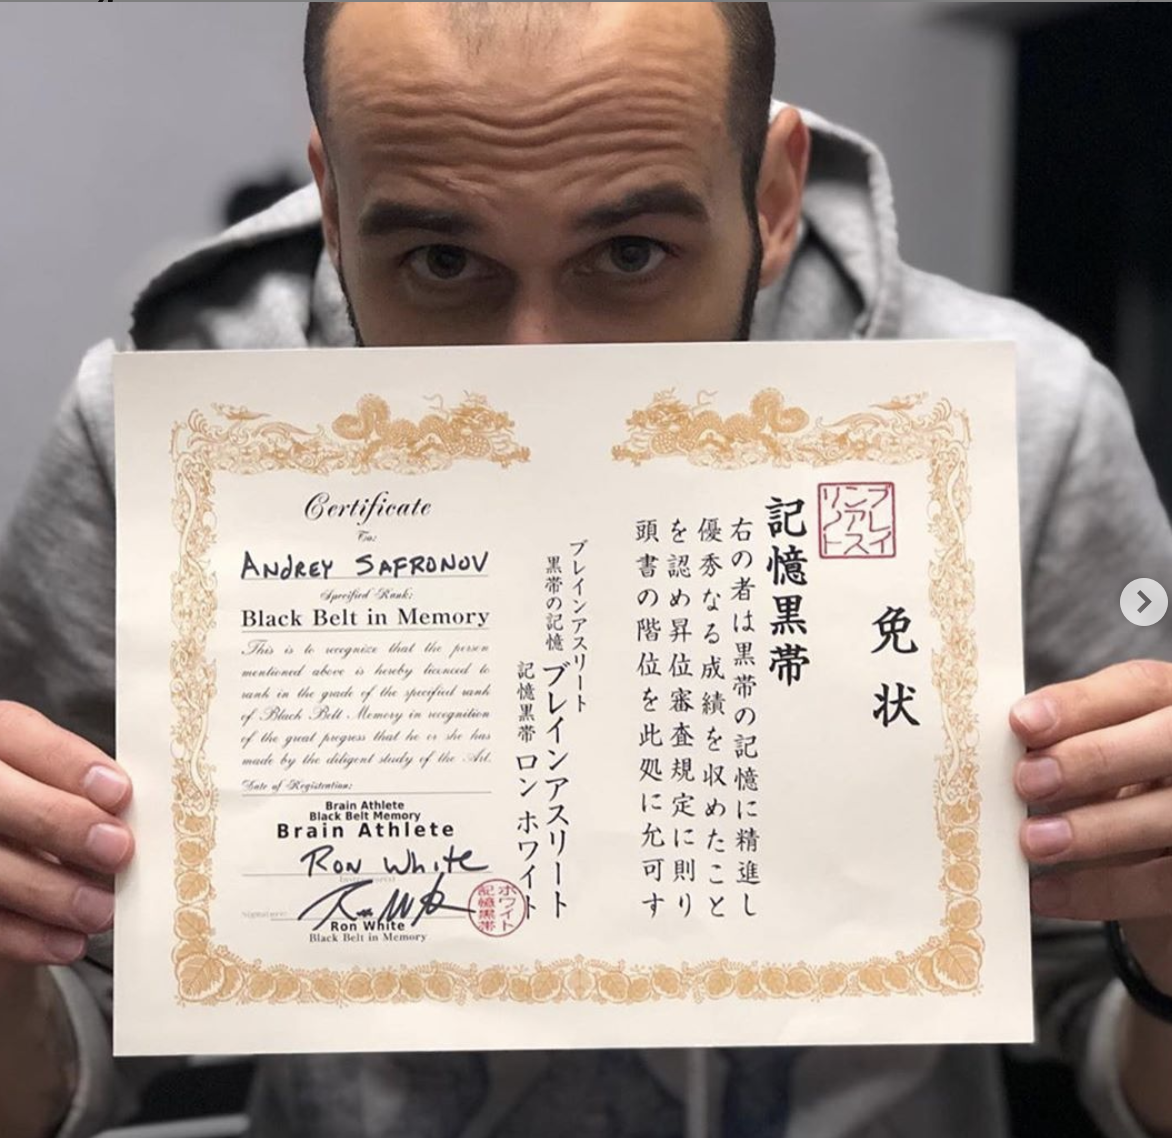 Certificate
To:
ANDREY SAFRONOV
Specified Rank:
Black Belt in Memory
This is to recognize that the person
mentioned above is hereby licenced to
rank in the grade of the specified rank
of Black Belt Memory in recognition
of the great progress that he or she has
made by the diligent study of the Art.
Date of Registration:
Brain Athlete
Black Belt Memory
Brain Athlete
RON White
Instructor
Signature:
Ron White
Black Belt in Memory
ホワイト
記憶黒帯
ブレイ
ンアス
リート
免状
記憶黒帯
右の者は黒帯の記憶に精進し
優秀なる成績を収めたこと
を認め昇位審査規定に則り
頭書の階位を此処に允可す
ブレインアスリート
黒帯の記憶 ブレインアスリート
記憶黒帯 ロン ホワイト